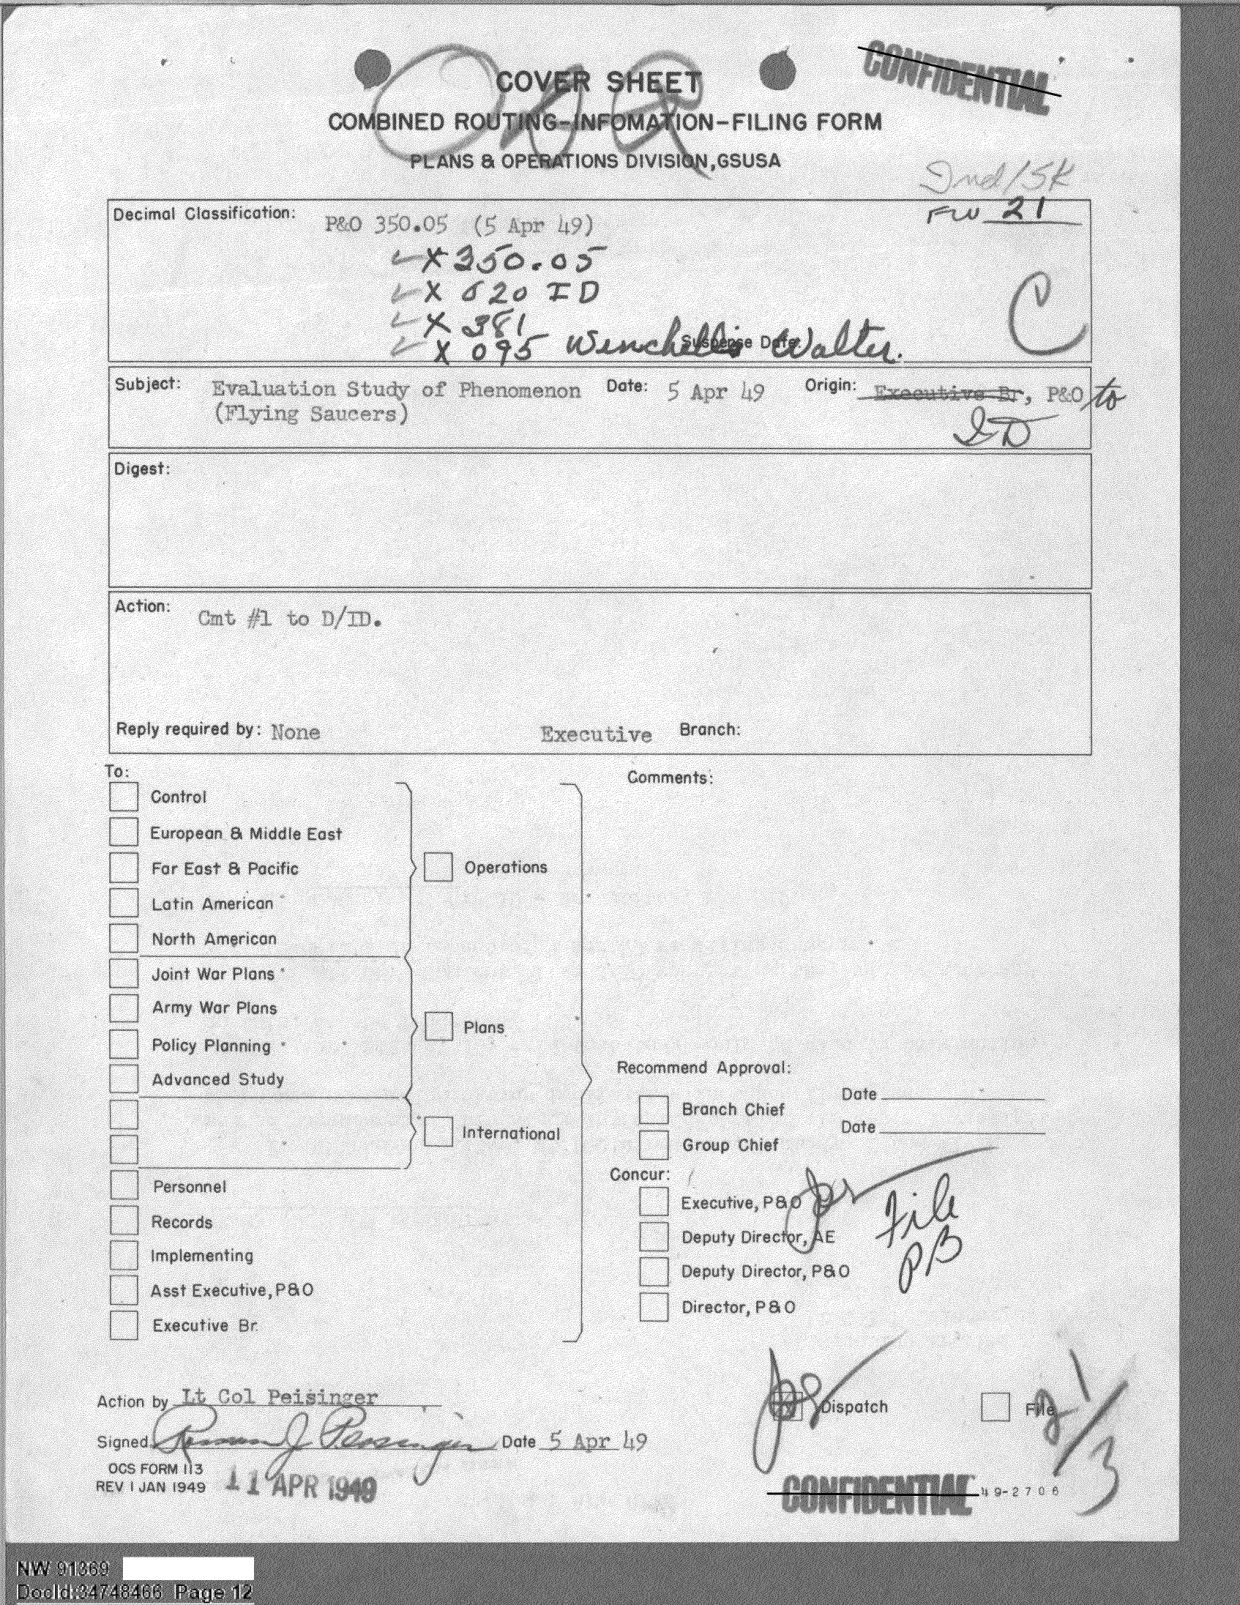 COVER SHEET
CONFIDENTIAL
COMBINED ROUTING-INFOMATION-FILING FORM
PLANS & OPERATIONS DIVISION, GSUSA
FW 21
Decimal Classification: P&O 350.05 (5 Apr 49)
X 350.05
X 020 ID
X 381
X 095 Winchell, Walter.
Suspense Date:
C
Subject: Evaluation Study of Phenomenon Date: 5 Apr 49 Origin: Executive Br, P&O to
(Flying Saucers) ID
Digest:
Action: Cmt #1 to D/ID.
Reply required by: None Executive Branch:
To: Comments:
Control
European & Middle East
Far East & Pacific Operations
Latin American
North American
Joint War Plans
Army War Plans Plans
Policy Planning
Advanced Study
International
Personnel
Records
Implementing
Asst Executive, P&O
Executive Br.
Recommend Approval:
Branch Chief Date
Group Chief Date
Concur:
Executive, P&O
Deputy Director, AE
Deputy Director, P&O
Director, P&O
File
PB
Action by Lt Col Peisinger
Dispatch File
Signed Roman J Peisinger Date 5 Apr 49
OCS FORM 113
REV 1 JAN 1949 11 APR 1949
CONFIDENTIAL 49-2706
NW 91369
DocId:34748466 Page 12